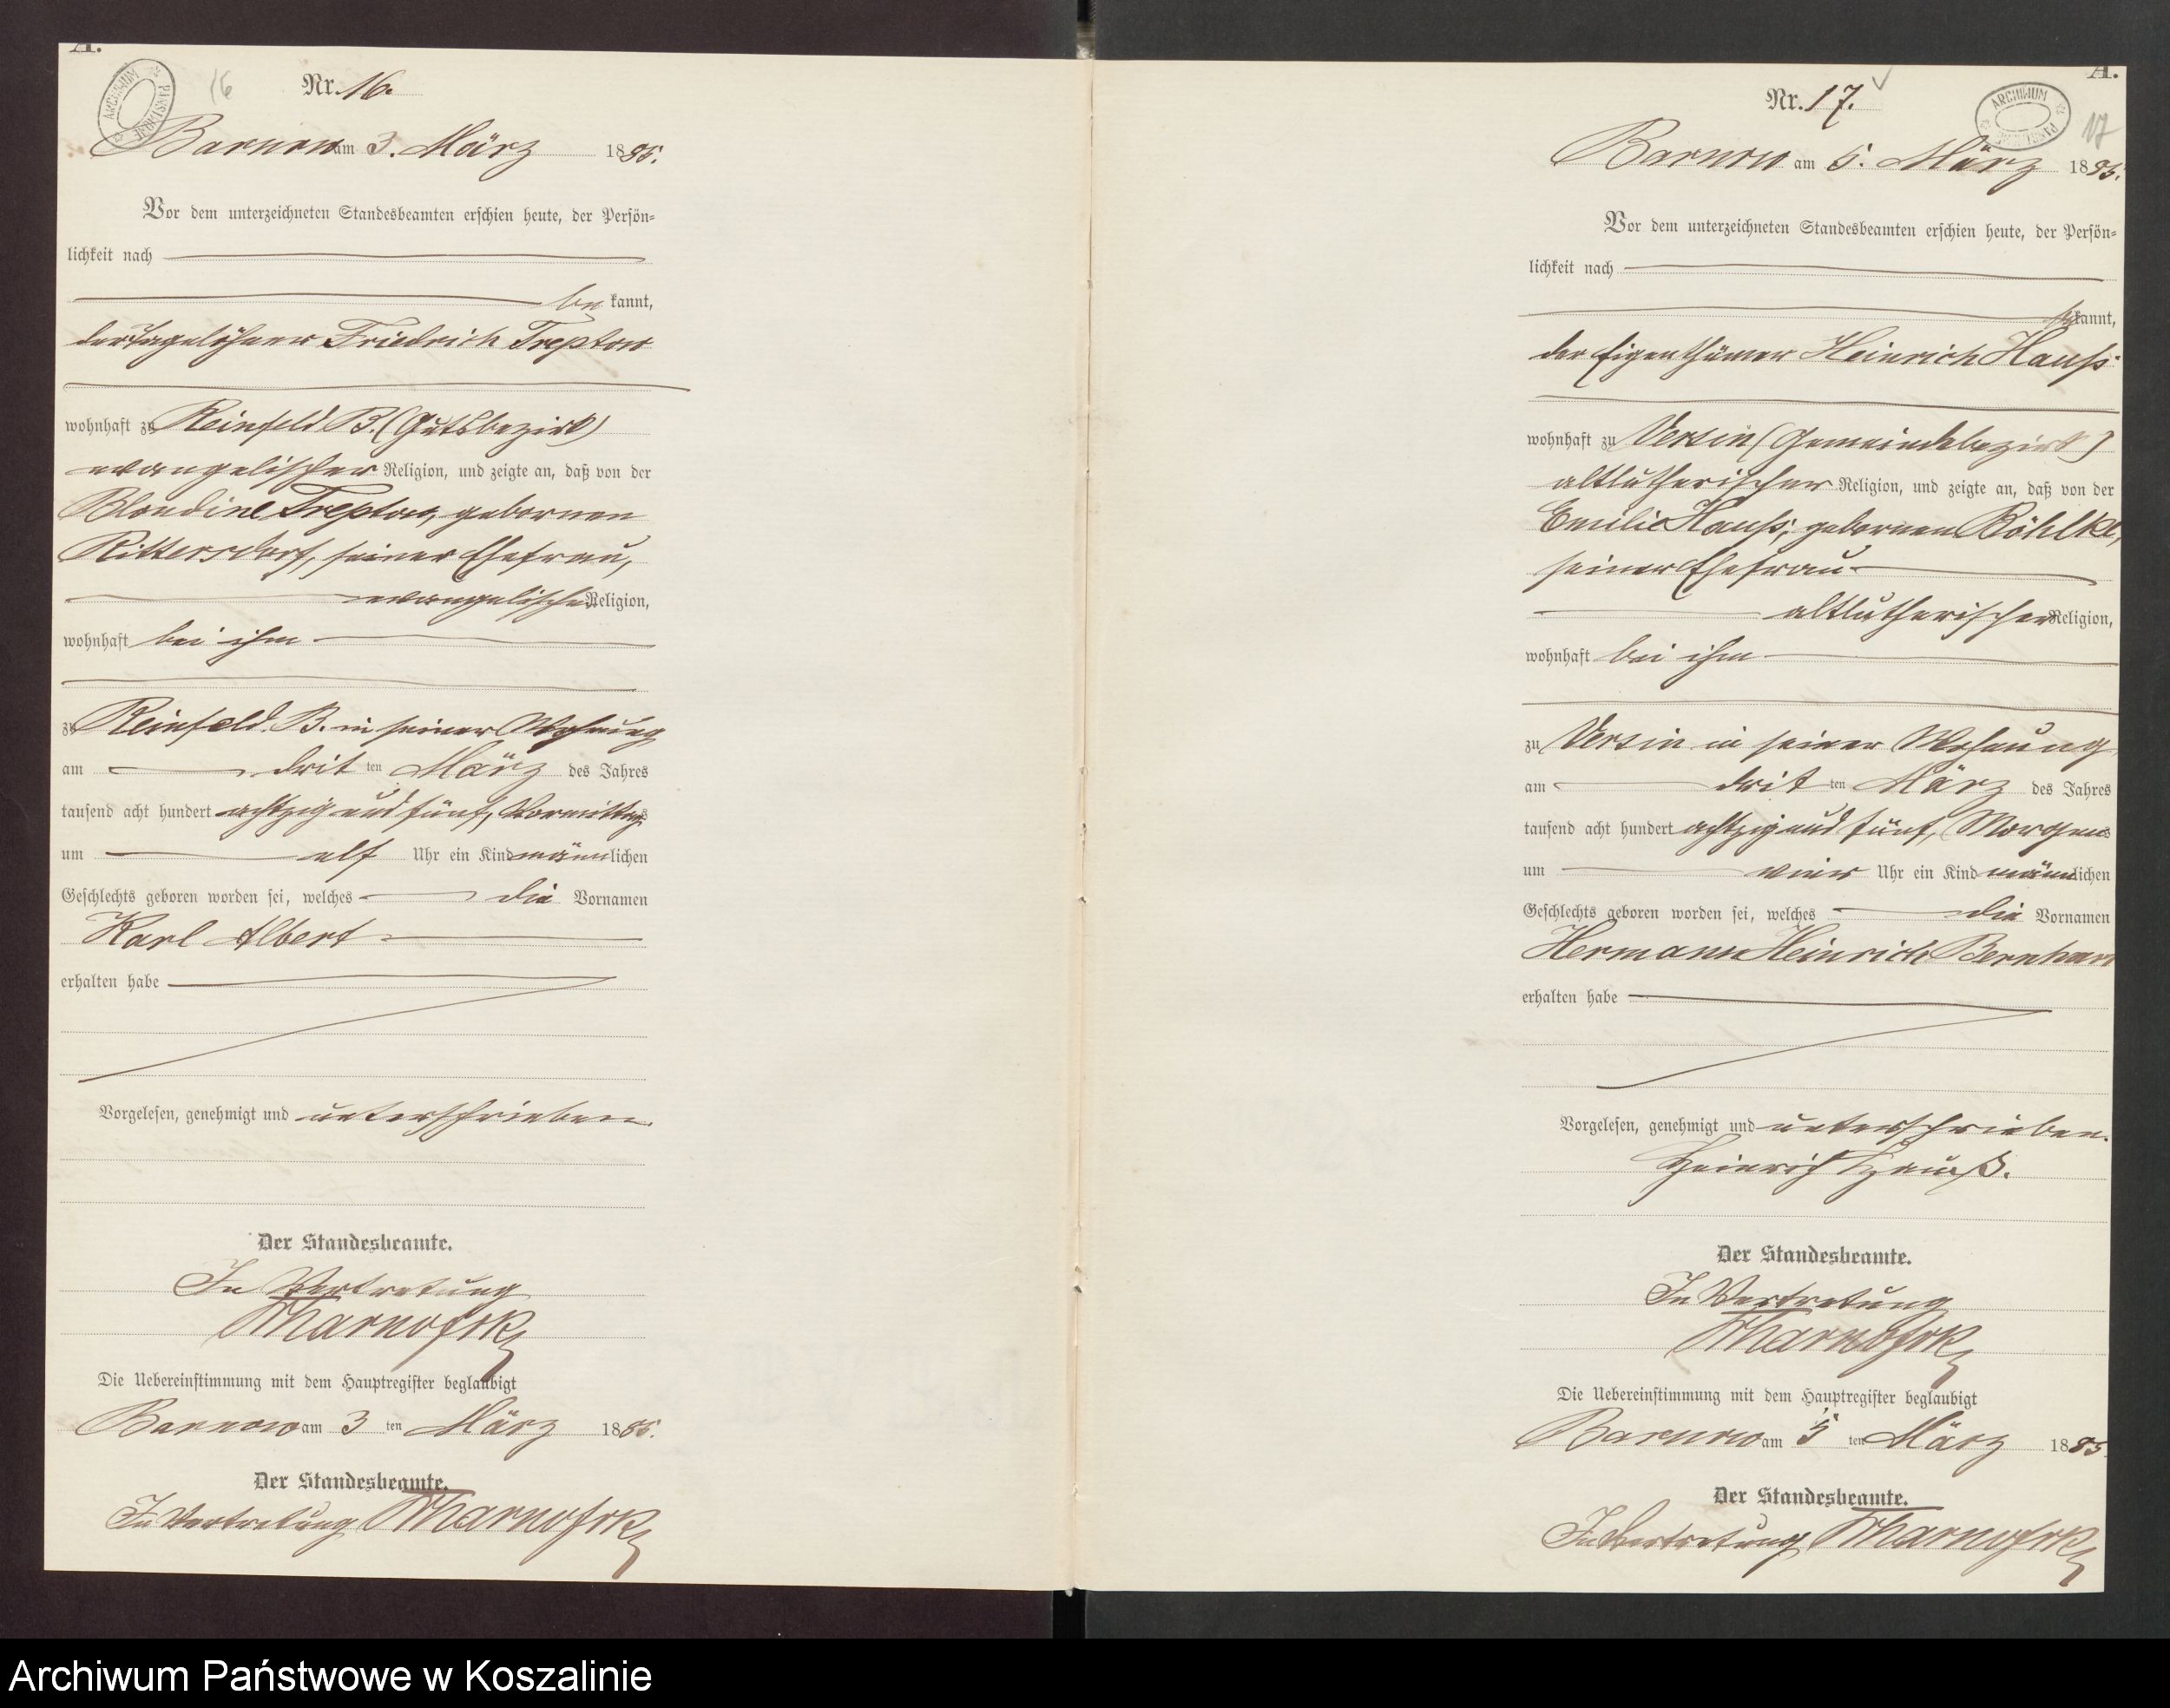 A.
ARCHIWUM PAŃSTWOWE
16
Nr. 16.
Barnow am 3. März 1885.
Vor dem unterzeichneten Standesbeamten erschien heute, der Persön-
lichkeit nach
be kannt,
der Tagelöhner Friedrich Treptow
wohnhaft zu Reinfeld B. (Gutsbezirk)
evangelischer Religion, und zeigte an, daß von der
Blondine Treptow, gebornen
Rittersdorf, seiner Ehefrau,
evangelischer Religion,
wohnhaft bei ihm
zu Reinfeld B. in seiner Wohnung
am drit ten März des Jahres
tausend acht hundert achtzig und fünf, Vormittags
um elf Uhr ein Kind männlichen
Geschlechts geboren worden sei, welches die Vornamen
Karl Albert
erhalten habe
Vorgelesen, genehmigt und unterschrieben
Der Standesbeamte.
In Vertretung
Die Uebereinstimmung mit dem Hauptregister beglaubigt
Barnow am 3 ten März 1885.
Der Standesbeamte.
In Vertretung
A.
ARCHIWUM PAŃSTWOWE
17
Nr. 17.
Barnow am 5. März 1885.
Vor dem unterzeichneten Standesbeamten erschien heute, der Persön-
lichkeit nach
be kannt,
der Eigenthümer Heinrich Hauß
wohnhaft zu Versin (Gemeindebezirk)
altlutherischer Religion, und zeigte an, daß von der
Emilie Hauß, gebornen Röhlke,
seiner Ehefrau
altlutherischer Religion,
wohnhaft bei ihm
zu Versin in seiner Wohnung
am drit ten März des Jahres
tausend acht hundert achtzig und fünf, Morgens
um vier Uhr ein Kind männlichen
Geschlechts geboren worden sei, welches die Vornamen
Hermann Heinrich Bernhard
erhalten habe
Vorgelesen, genehmigt und unterschrieben.
Heinrich Hauß.
Der Standesbeamte.
In Vertretung
Die Uebereinstimmung mit dem Hauptregister beglaubigt
Barnow am 5 ten März 1885
Der Standesbeamte.
In Vertretung
Archiwum Państwowe w Koszalinie